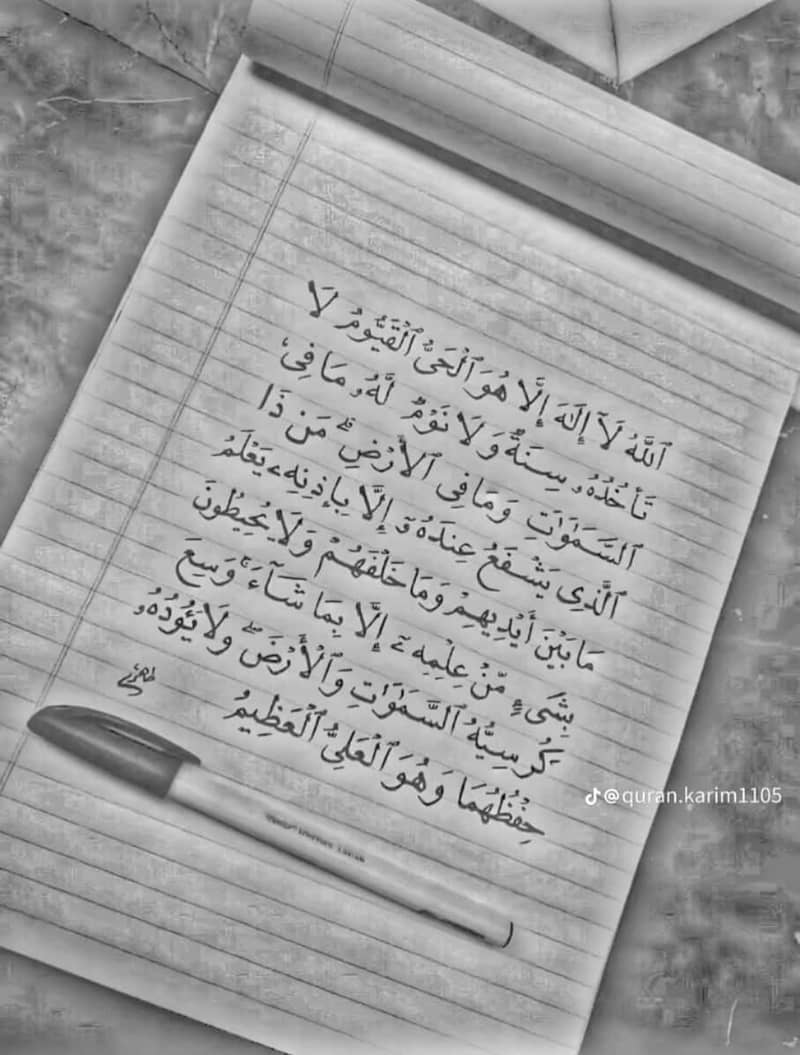 ٱللَّهُ لَآ إِلَٰهَ إِلَّا هُوَ ٱلْحَىُّ ٱلْقَيُّومُ لَا
تَأْخُذُهُۥ سِنَةٌ وَلَا نَوْمٌ لَّهُۥ مَا فِى
ٱلسَّمَٰوَٰتِ وَمَا فِى ٱلْأَرْضِ ۗ مَن ذَا
ٱلَّذِى يَشْفَعُ عِندَهُۥٓ إِلَّا بِإِذْنِهِۦ يَعْلَمُ
مَا بَيْنَ أَيْدِيهِمْ وَمَا خَلْفَهُمْ وَلَا يُحِيطُونَ
بِشَىْءٍ مِّنْ عِلْمِهِۦٓ إِلَّا بِمَا شَآءَ ۚ وَسِعَ
كُرْسِيُّهُ ٱلسَّمَٰوَٰتِ وَٱلْأَرْضَ ۖ وَلَا يَـُٔودُهُۥ
حِفْظُهُمَا وَهُوَ ٱلْعَلِىُّ ٱلْعَظِيمُ
@quran.karim1105